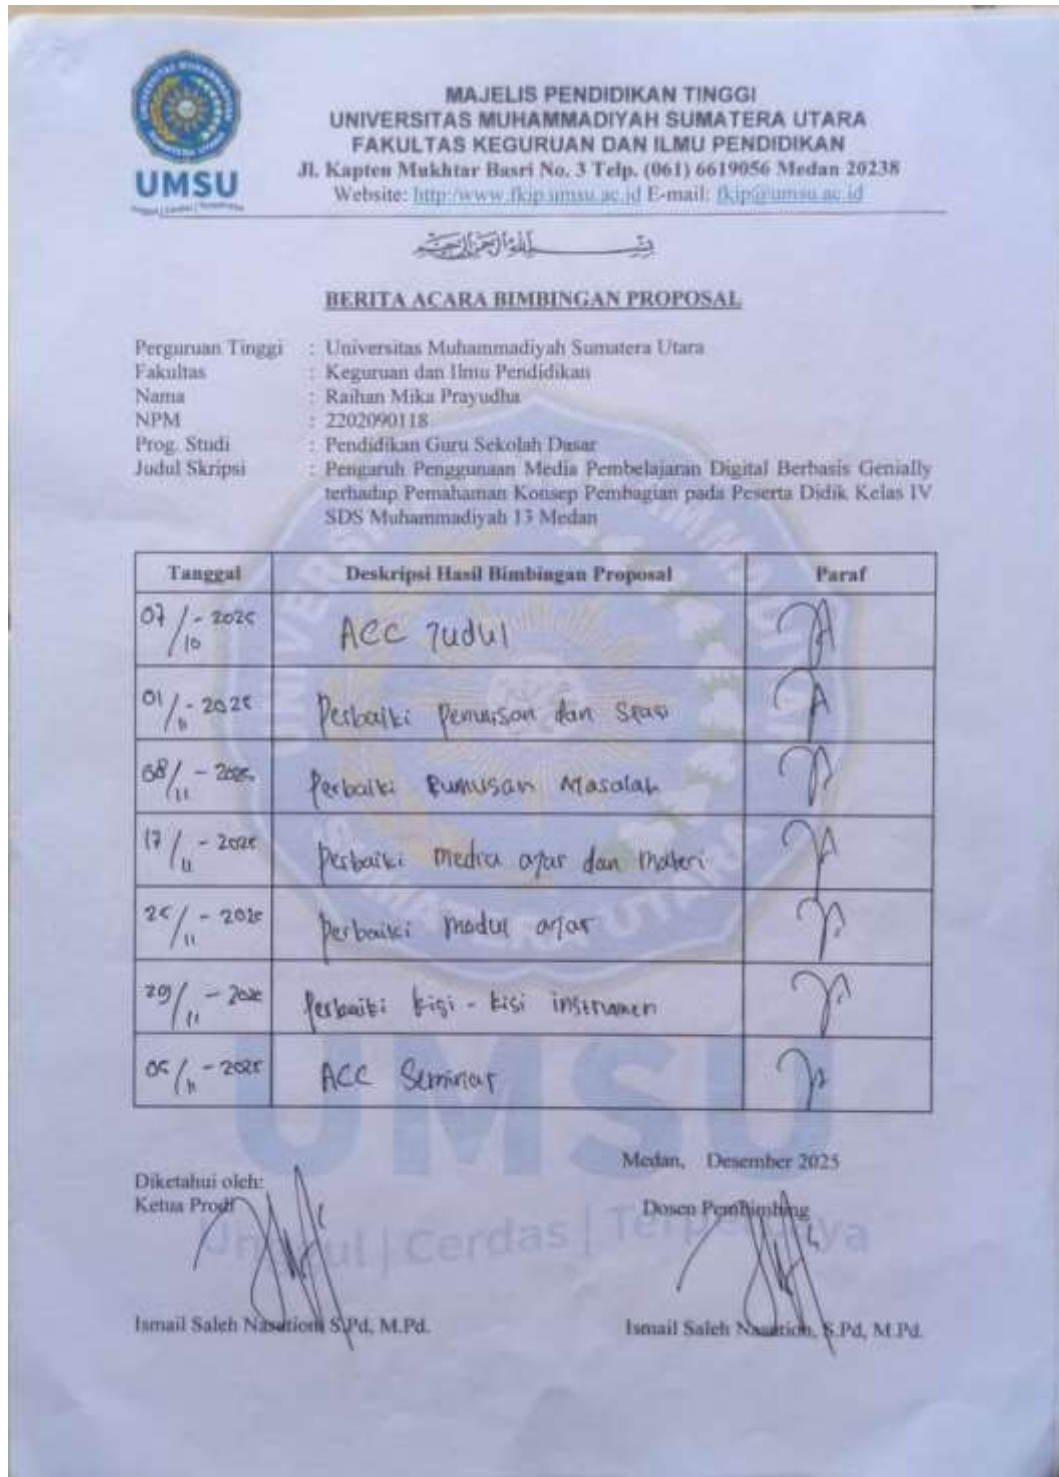 MAJELIS PENDIDIKAN TINGGI
UNIVERSITAS MUHAMMADIYAH SUMATERA UTARA
FAKULTAS KEGURUAN DAN ILMU PENDIDIKAN
Jl. Kapten Mukhtar Basri No. 3 Telp. (061) 6619056 Medan 20238
Website: http:/www.fkip.umsu.ac.id E-mail: fkip@umsu.ac.id
UMSU
Unggul | Cerdas | Terpercaya
بسم الله الرحمن الرحيم
BERITA ACARA BIMBINGAN PROPOSAL
Perguruan Tinggi : Universitas Muhammadiyah Sumatera Utara
Fakultas : Keguruan dan Ilmu Pendidikan
Nama : Raihan Mika Prayudha
NPM : 2202090118
Prog. Studi : Pendidikan Guru Sekolah Dasar
Judul Skripsi : Pengaruh Penggunaan Media Pembelajaran Digital Berbasis Genially
terhadap Pemahaman Konsep Pembagian pada Peserta Didik Kelas IV
SDS Muhammadiyah 13 Medan
Tanggal Deskripsi Hasil Bimbingan Proposal Paraf
07/10 - 2025 ACC Judul
01/11 - 2025 Perbaiki Penulisan dan Spasi
08/11 - 2025 Perbaiki Rumusan Masalah
17/11 - 2025 Perbaiki media ajar dan Materi
25/11 - 2025 Perbaiki modul ajar
29/11 - 2025 Perbaiki kisi - kisi instrumen
05/11 - 2025 ACC Seminar
UMSU
Unggul | Cerdas | Terpercaya
Medan, Desember 2025
Diketahui oleh:
Ketua Prodi Dosen Pembimbing
Ismail Saleh Nasution S.Pd, M.Pd. Ismail Saleh Nasution, S.Pd, M.Pd.